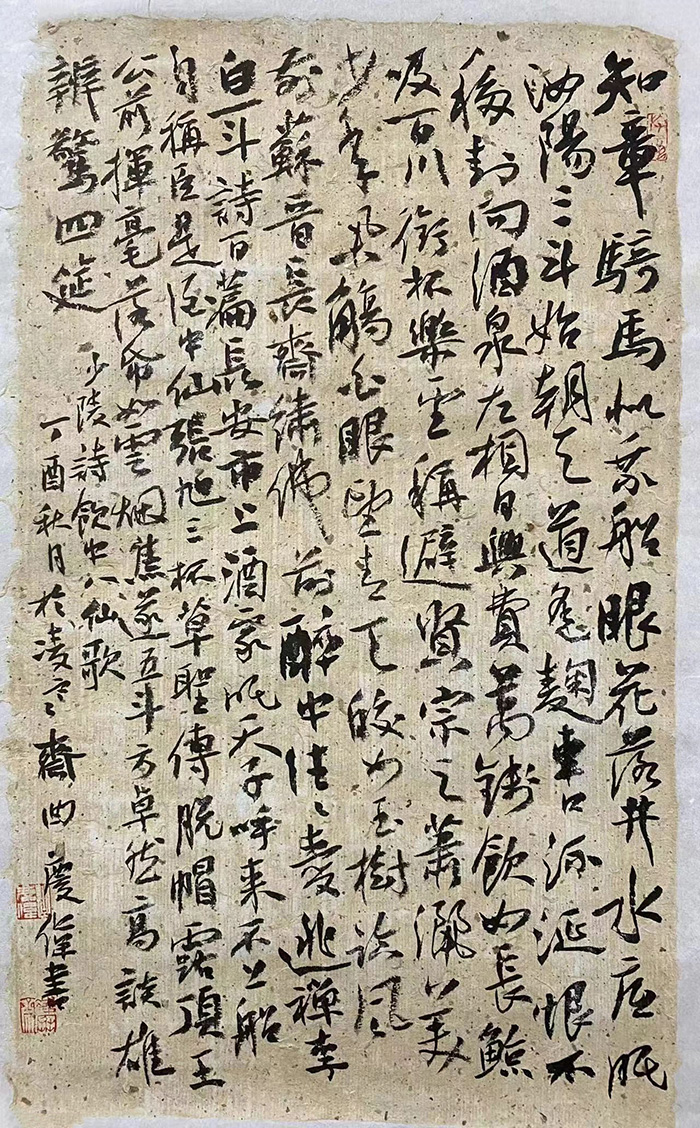 知章騎馬似乘船眼花落井水底眠
汝陽三斗始朝天道逢麴車口流涎恨不
移封向酒泉左相日興費萬錢飲如長鯨
吸百川銜杯樂聖稱避賢宗之蕭灑美
少年舉觴白眼望青天皎如玉樹臨風
前蘇晉長齋繡佛前醉中往〻愛逃禪李
白一斗詩百篇長安市上酒家眠天子呼來不上船
自稱臣是酒中仙張旭三杯草聖傳脫帽露頂王
公前揮毫落紙如雲烟焦遂五斗方卓然高談雄
辨驚四筵
少陵詩飲中八仙歌
丁酉秋月於凌齋曲慶偉書